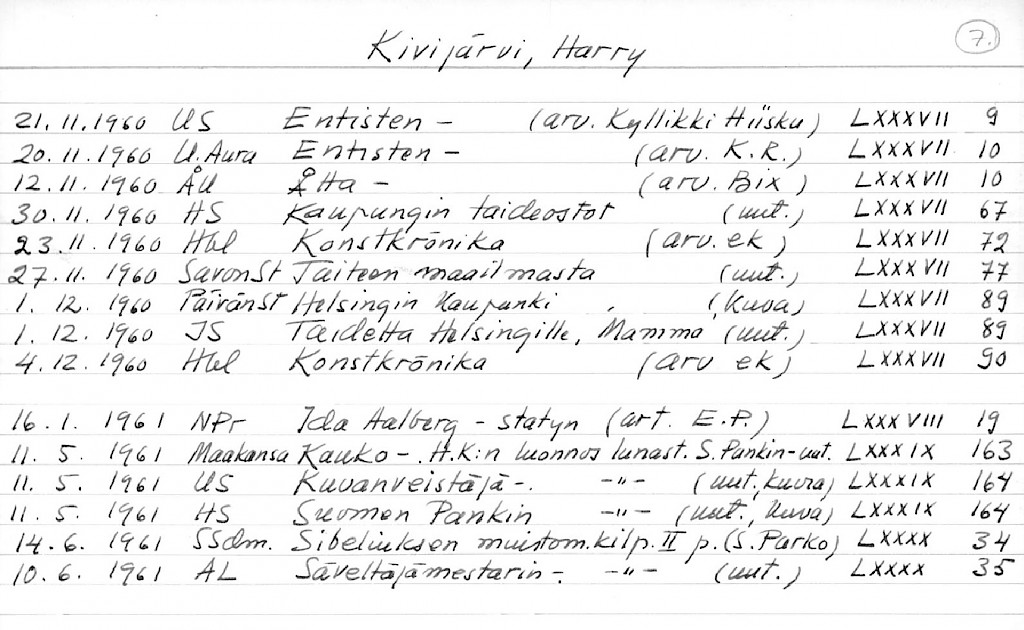 Kivijärvi, Harry 7.
21.11.1960 US Entisten - (arv. Kyllikki Hiisku) LXXXVII 9
20.11.1960 U.Aura Entisten - (arv. K.R.) LXXXVII 10
12.11.1960 ÅU Åtta - (arv. Bix) LXXXVII 10
30.11.1960 HS Kaupungin taideostot (uut.) LXXXVII 67
23.11.1960 Hbl Konstkrönika (arv. ek) LXXXVII 72
27.11.1960 SavonSt Taiteen maailmasta (uut.) LXXXVII 77
1.12.1960 PäivänSt Helsingin kaupunki (kuva) LXXXVII 89
1.12.1960 IS Taidetta Helsingille, Mamma (uut.) LXXXVII 89
4.12.1960 Hbl Konstkrönika (arv ek) LXXXVII 90
16.1. 1961 NPr Ida Aalberg - statyn (art. E.P.) LXXXVIII 19
11.5. 1961 Maakansa Kauko-. H.K:n luonnos lunast. S.Pankin-uut. LXXXIX 163
11.5. 1961 US Kuvanveistäjä-. -"- (uut., kuva) LXXXIX 164
11.5. 1961 HS Suomen Pankin -"- (uut., kuva) LXXXIX 164
14.6. 1961 SSdm. Sibeliuksen muistom.kilp. II p. (S.Parko) LXXXX 34
10.6. 1961 AL Säveltäjämestarin-. -"- (uut.) LXXXX 35